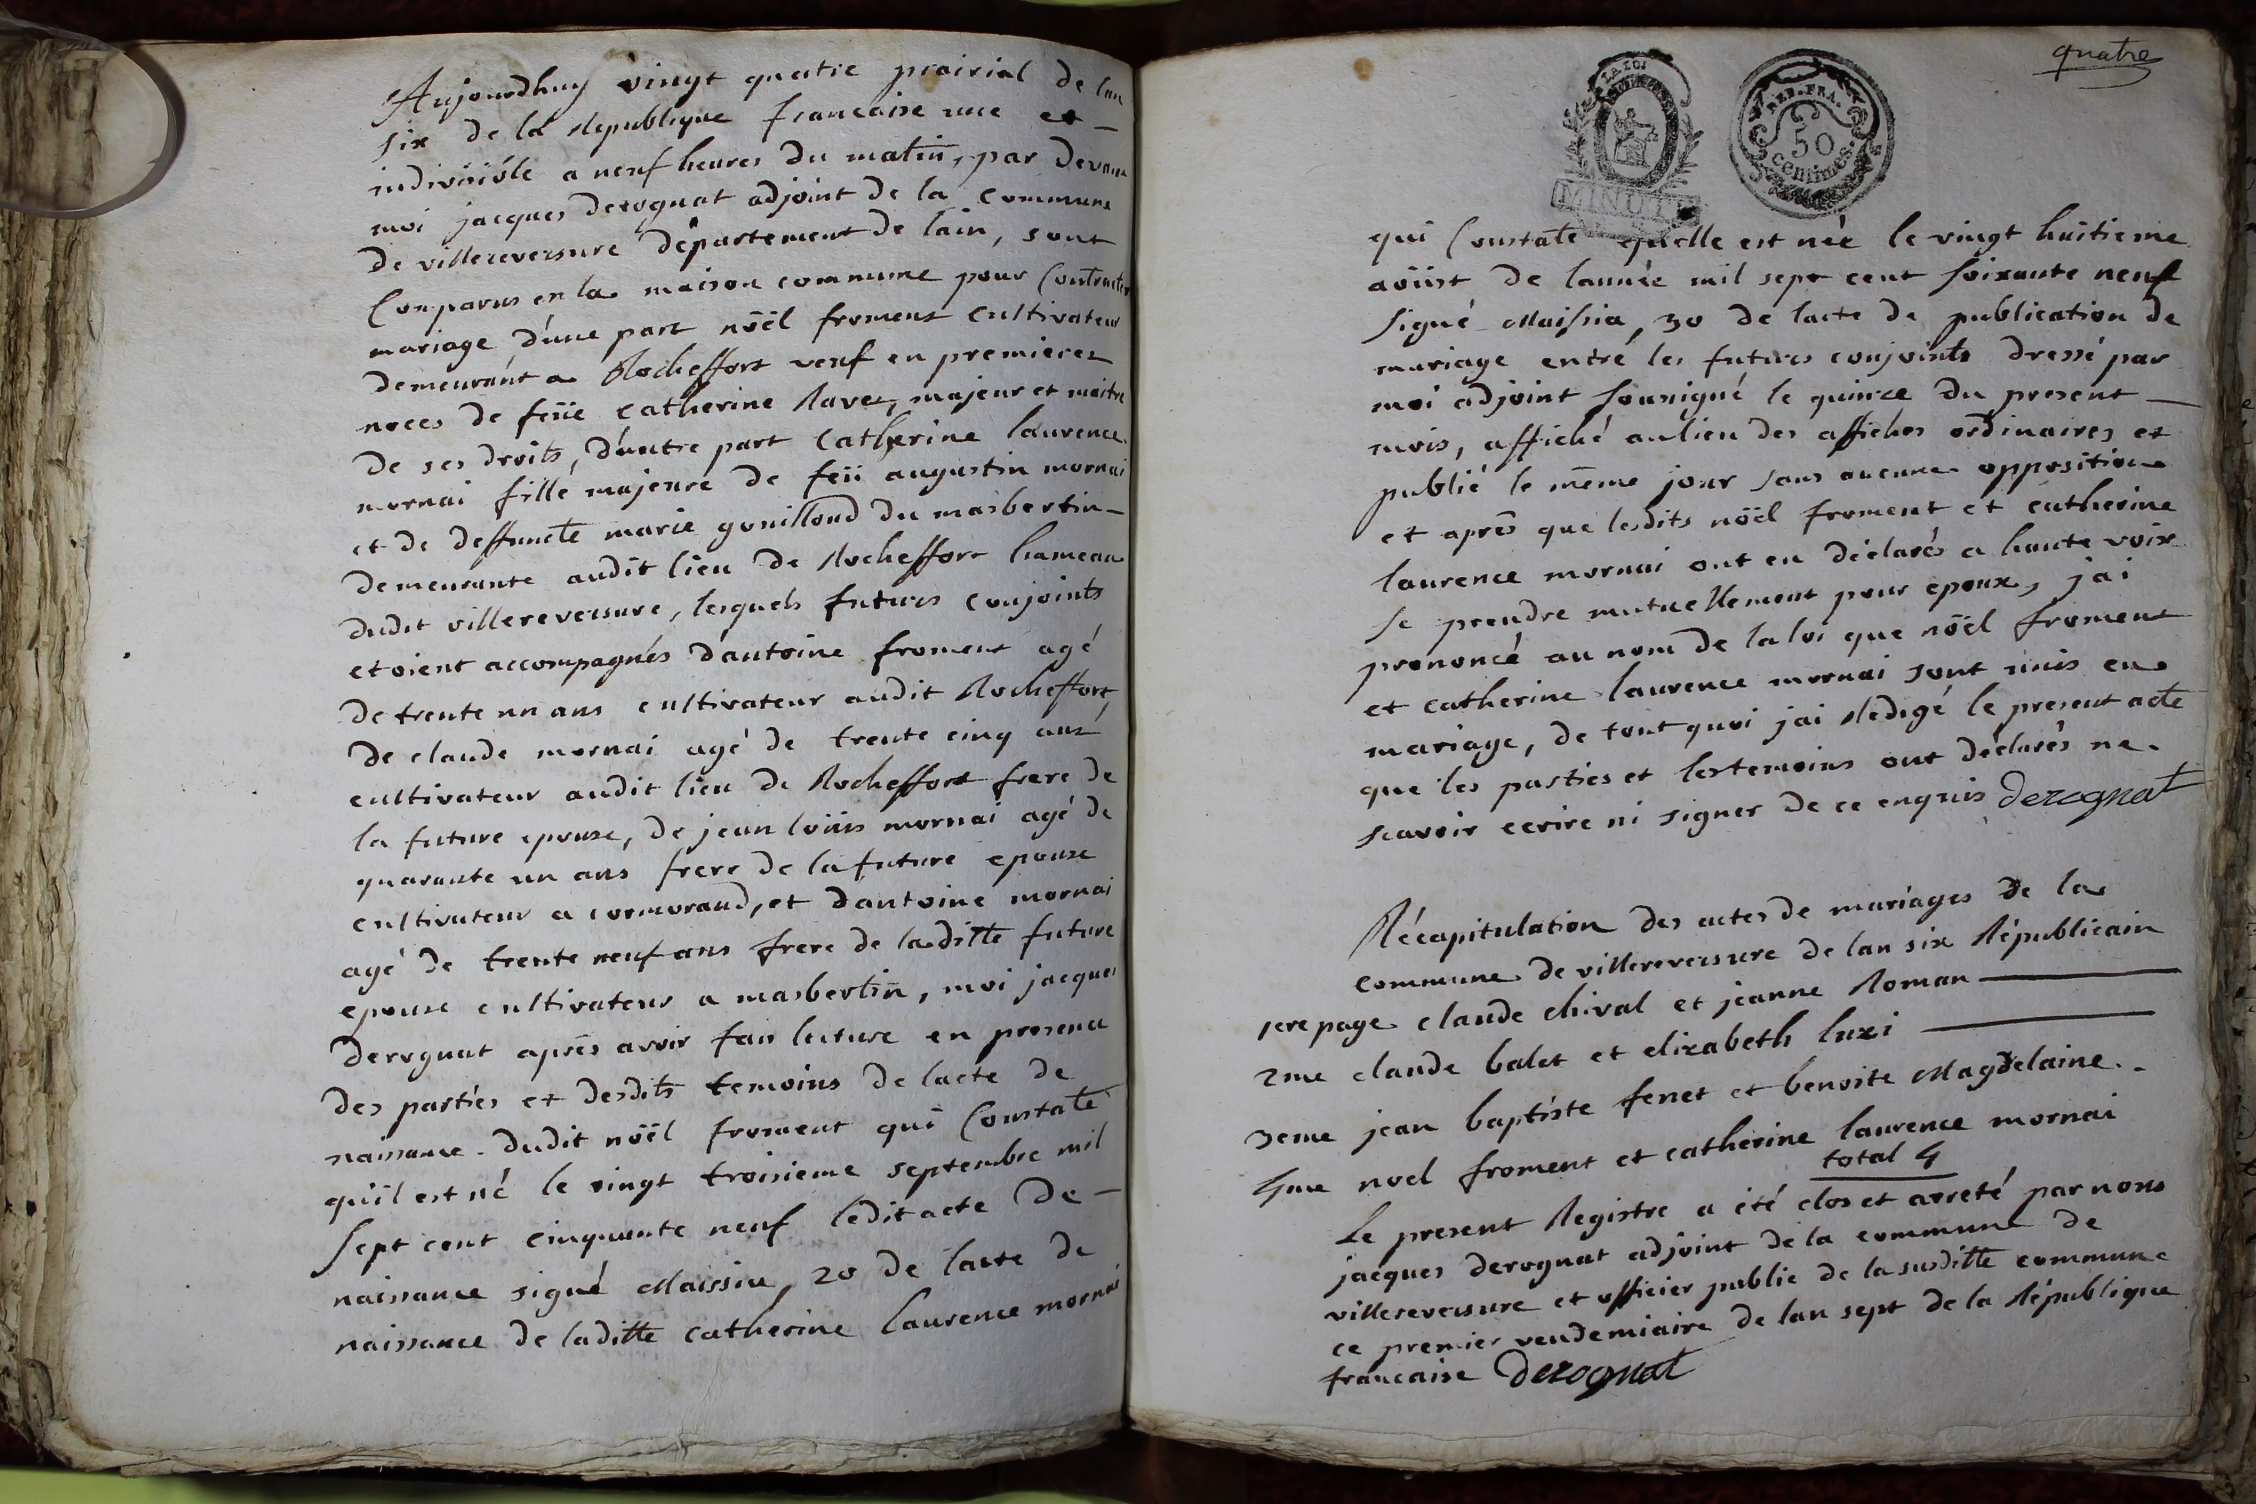 Aujourdhuy vingt quatre prairial de lan
six de la Republique francaise une et
indivisible a neuf heures du matin, par devant
moi jacques derognat adjoint de la commune
de villereversure departement de lain, sont
Comparus en la maison commune pour Contracter
mariage dune part nöel froment cultivateur
demeurant a Rocheffort veuf en premieres
noces de feüe catherine Ravet, majeur et maitre
de ses droits, dautre part catherine laurence
mornai fille majeure de feü augustin mornai
et de deffuncte marie gouilloud du masbertin
demeurante audit lieu de Rocheffort hameau
dudit villereversure, lesquels futurs conjoints
etoient accompagnés dantoine froment agé
de trente un ans cultivateur audit Rocheffort,
de claude mornai agé de trente cinq ans
cultivateur audit lieu de Rocheffort frere de
la future epouse, de jean loüis mornai agé de
quarante un ans frere de la future epouse
cultivateur a cormoraud, et dantoine mornai
agé de trente neuf ans frere de laditte future
epouse cultivateur a masbertin, moi jacques
derognat aprés avoir fait lecture en presence
des parties et desdits temoins de lacte de
naissance dudit nöel froment qui Constate
quil est né le vingt troisieme septembre mil
sept cent cinquante neuf ledit acte de
naissance signé Maissia, 20 de lacte de
naissance de laditte catherine laurence mornai
quatre
LA LOI
MINUTE
REP. FRA.
50
centimes.
qui Constate quelle est née le vingt huitieme
aoüst de lannée mil sept cent soixante neuf
signé Maissia, 30 de lacte de publication de
mariage entre les futurs conjoints dressé par
moi adjoint sousigné le quinze du present
mois, affiché au lieu des affiches ordinaires et
publié le même jour sans aucune opposition
et aprés que lesdits nöel froment et catherine
laurence mornai ont eu déclarés a haute voix
se prendre mutuellement pour epoux, jai
prononcé au nom de la loi que nöel froment
et catherine laurence mornai sont unis en
mariage, de tout quoi jai Redigé le present acte
que les parties et les temoins ont déclarés ne
scavoir ecrire ni signer de ce enquis derognat
Récapitulation des actes de mariages de la
commune de villereversure de lan six Républicain
1ere page claude chival et jeanne Roman
2me claude balet et elizabeth luxi
3eme jean baptiste fenet et benoite Magdelaine
4me noel froment et catherine laurence mornai
total 4
Le present Registre a été clos et arreté par nous
jacques derognat adjoint de la commune de
villereversure et officier public de la susditte commune
ce premier vendemiaire de lan sept de la République
francaise derognat